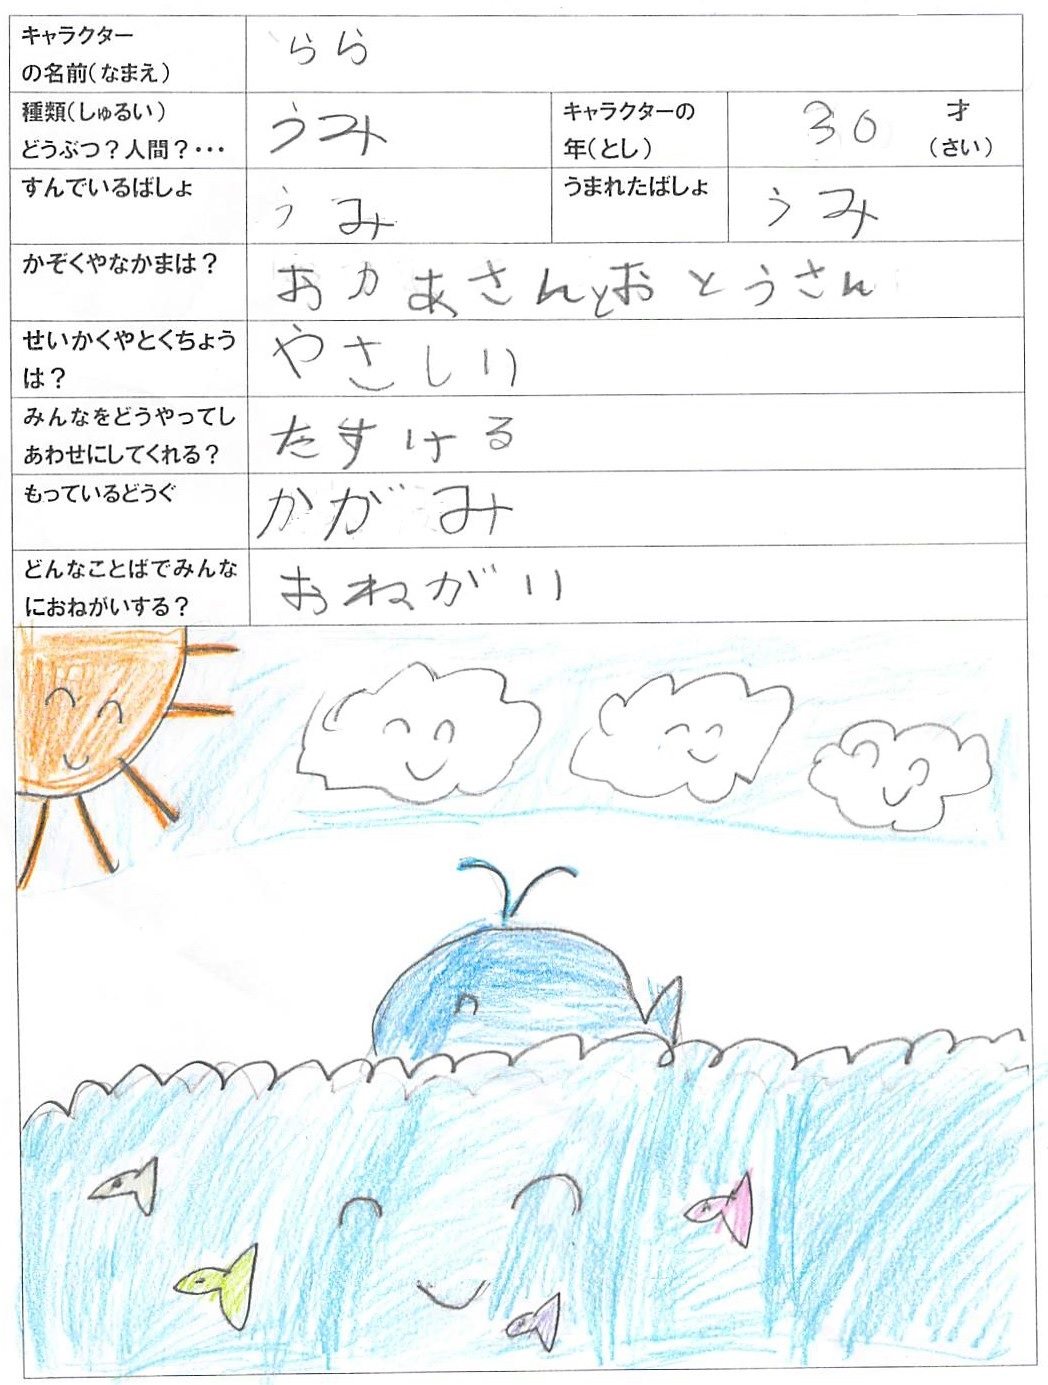 キャラクター
の名前(なまえ)
らら
種類(しゅるい)
どうぶつ?人間?・・・
うみ
キャラクターの
年(とし)
30
才
(さい)
すんでいるばしょ
うみ
うまれたばしょ
うみ
かぞくやなかまは?
おかあさんとおとうさん
せいかくやとくちょう
は?
やさしい
みんなをどうやってし
あわせにしてくれる?
たすける
もっているどうぐ
かがみ
どんなことばでみんな
におねがいする?
おねがい